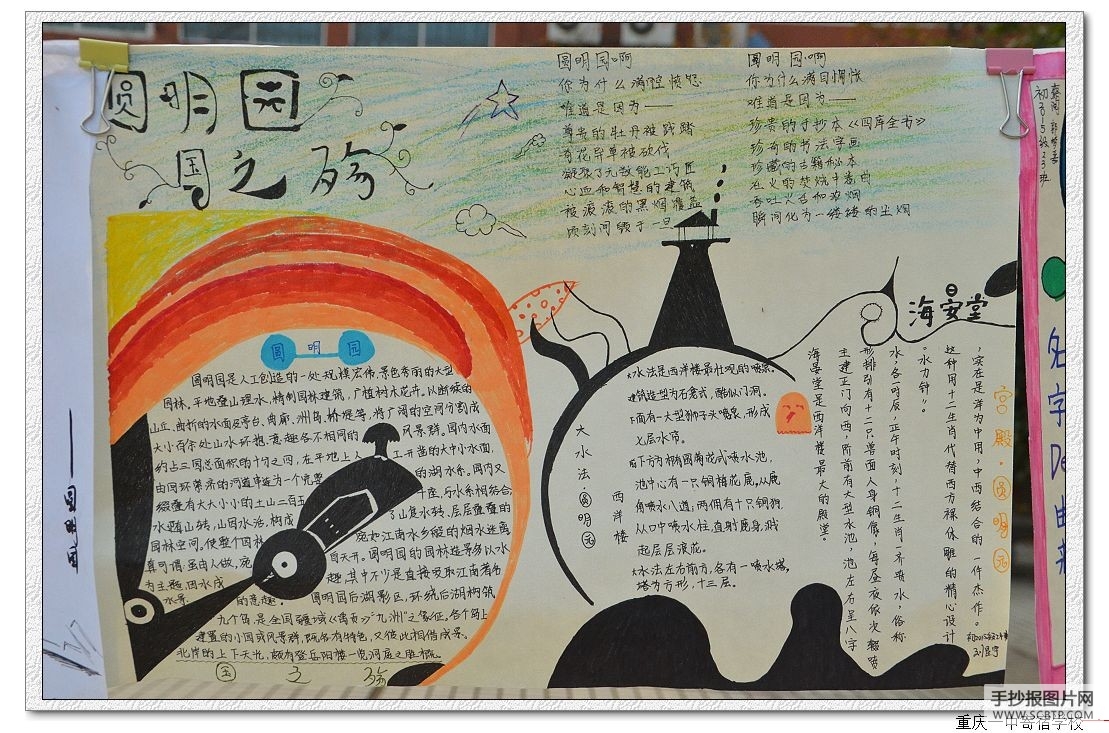 圆明园
国之殇
圆明园啊
你为什么满腔愤怒
难道是因为——
尊贵的牡丹被践踏
奇花异草被砍伐
凝聚了无数能工巧匠
心血和智慧的建筑
被滚滚的黑烟覆盖
顷刻间毁于一旦
圆明园啊
你为什么满目惆怅
难道是因为——
珍贵的手抄本《四库全书》
珍奇的书法字画
珍藏的古籍秘本
在火的焚烧中卷曲
吞吐火舌和浓烟
瞬间化为一缕缕的尘烟
圆明园
圆明园是人工创造的一处规模宏伟,景色秀丽的大型
园林。平地叠山理水,精制园林建筑,广植树木花卉。以断续的
山丘、曲折的水面及亭台、曲廊、洲岛、桥堤等,将广阔的空间分割成
大小百余处山水环抱、意趣各不相同的风景群。园内水面
约占三园总面积的十分之四,在平地上人工开凿的大中小水面,
由回环萦流的河道串连为一个完整的湖水系。园内又
缀叠有大大小小的土山二百五十座,与水系相结合,
水随山转,山因水活,构成了山复水转、层层叠叠的
园林空间。使整个园林宛如江南水乡般的烟水迷离
真可谓:虽由人做,宛自天开。圆明园的园林造景多以水
为主题,因水成趣,其中不少是直接吸取江南著名
水景的意趣。圆明园后湖景区,环绕后湖构筑
九个岛,是全国疆域《禹贡》“九州”之象征,各个岛上
建置的小园或风景群,既各有特色,又彼此相借成景。
北岸的上下天光,颇有登岳阳楼一览洞庭之胜概。
国之殇
大水法·圆明园
西洋楼
大水法是西洋楼最壮观的喷泉。
建筑造型为石龛式,酷似门洞。
下面有一大型狮子头喷泉,形成
七层水帘。
下方为椭圆菊花式喷水池,
池中心有一只铜梅花鹿,从鹿
角喷水八道;两侧有十只铜狗,
从口中喷水柱,直射鹿身,溅
起层层浪花。
大水法左右前方,各有一喷水塔,
塔为方形,十三层。
海晏堂
海晏堂是西洋楼最大的殿堂。
主建正门向西,阶前有大型水池,池左右呈八字
形排列有十二只兽面人身铜像,每昼夜依次轮喷
水,各一时辰,正午时刻,十二生肖一齐喷水,俗称
“水力钟”。
这种用十二生肖代替西方裸体雕的精心设计
实在是洋为中用、中西结合的一件杰作。
宫殿·圆明园
初
级23班
名字De由来
圆明园——
手抄报图片网
WWW.SCBTP.COM
重庆一中寄宿学校